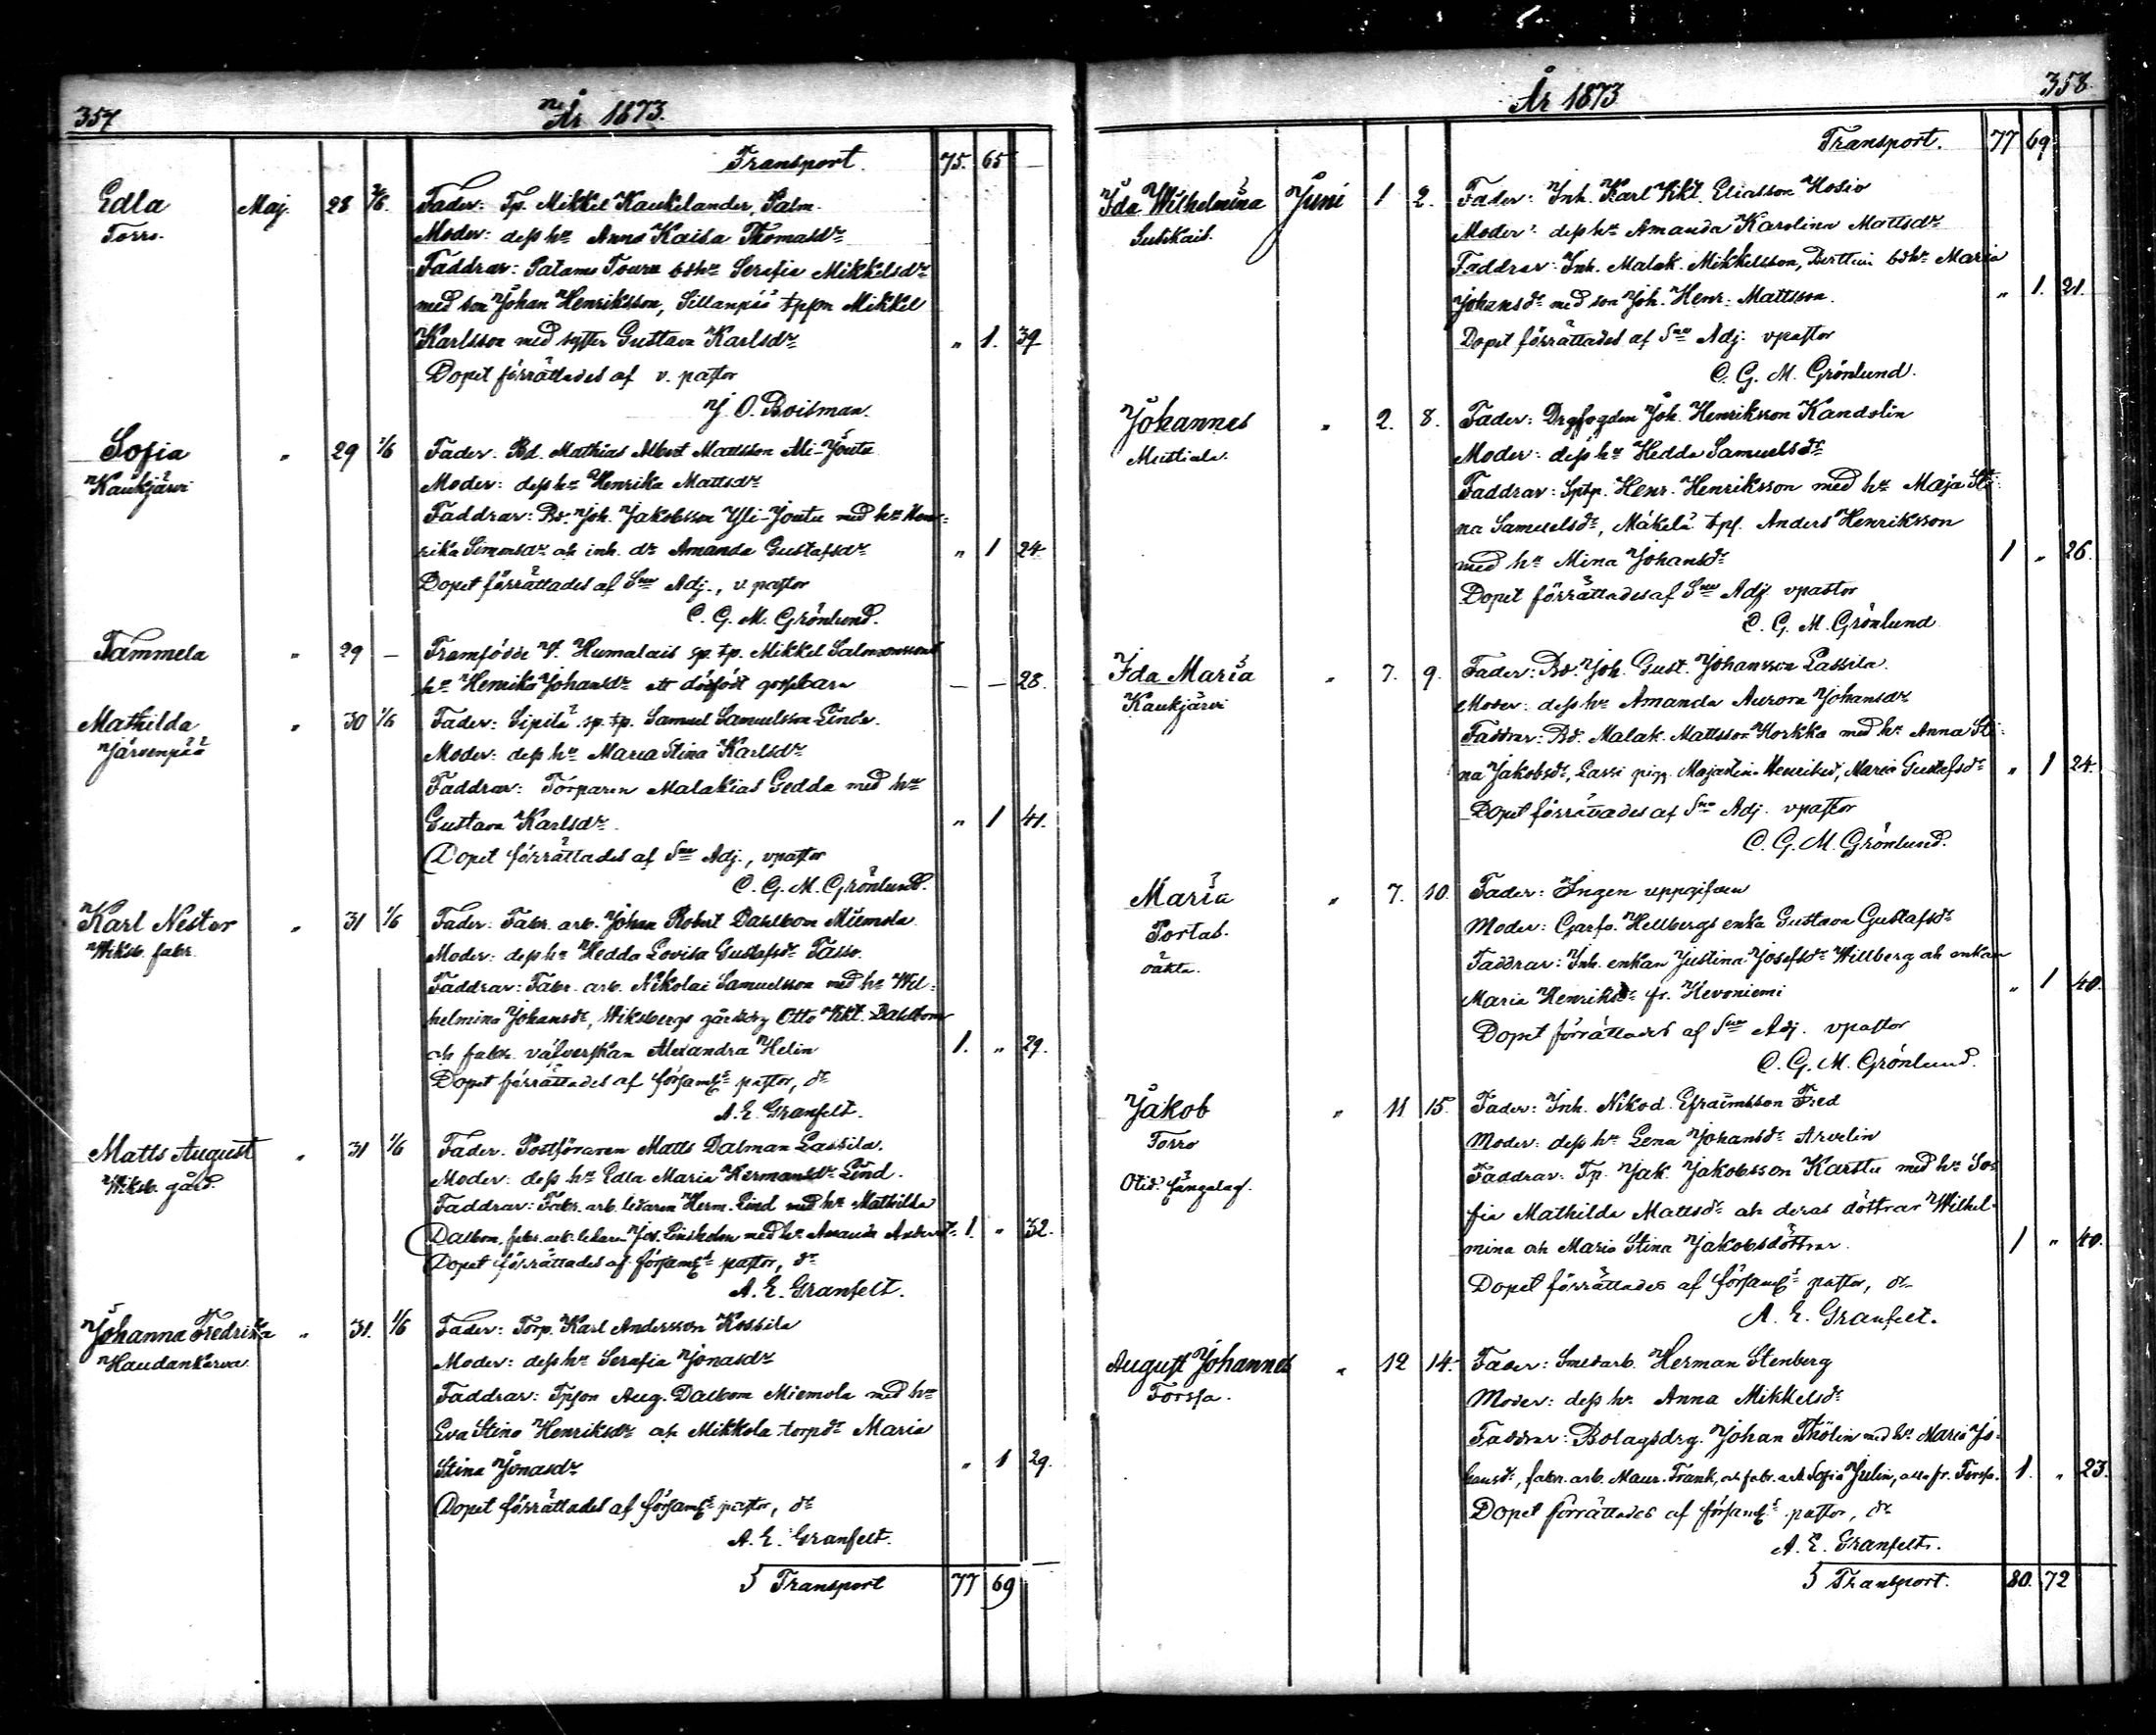 357
År 1873.
Transport. 75. 65 —
Edla Maj. 28 2/6. Fader: Tp. Mikkel Kaukelander, Palm.
Torro. Moder: dess hu Anna Kaisa Thomasdr
Faddrar: bdhu Serafia Mikkelsdr
med son Johan Henriksson, Sillanpää Mikkel
Karlsson med syster Gustava Karlsdr „ 1. 39
Dopet förrättades af v. pastor
J. O. Boisman.
Sofia „ 29 1/6 Fader: Bd. Mathias Albert Mattsson Ali-Joutu
Kaukjärvi Moder: dess hu Henrika Mattsdr
Faddrar: Bd. Joh. Jakobsson Yli-Joutu med hu Hen-
rika Simonsdr och inh. dr Amanda Gustafsdr „ 1 24
Dopet förrättades af Snes Adj., v pastor
C. G. M. Grönlund.
Tammela „ 29 — Framfödde Humalais sp. tp. Mikkel Salomonssons
hu Henrika Johansdr ett dödfödt gossebarn — — 28.
Mathilda „ 30 1/6 Fader: Sipilä sp. tp. Samuel Samuelsson Linda.
Järvenpää Moder: dess hu Maria Stina Karlsdr
Faddrar: Torparen Malakias Gedda med hu
Gustava Karlsdr. „ 1 41.
Dopet förrättades af Snes Adj., vpastor
C. G. M. Grönlund.
Karl Nestor „ 31 1/6 Fader: Fabr. arb. Johan Robert Dahlbom Miemola
Wiksb. fabr. Moder: dess hu Hedda Lovisa Gustafsdr Tasso.
Faddrar: Fabr. arb. Nikolai Samuelsson med hu Wil-
helmina Johansdr, Wiksbergs Otto Vikt. Dahlbom
och fabr. väfverskan Alexandra Helin 1. „ 29.
Dopet förrättades af församl:s pastor, dr
A. E. Granfelt.
Matts August „ 31 1/6 Fader: Postföraren Matts Dalman Lassila.
Wiksb. gård. Moder: dess hu Edla Maria Hermansdr Lind.
Faddrar: Fabr. arb. ledaren Herm. Lind med hu Mathilda
Dalbom, fabr. arb. ledaren Jos. Lindholm med hu Amanda 1. „ 32.
Dopet förrättades af församl:s pastor, dr
A. E. Granfelt.
Johanna Fredrika „ 31. 1/6 Fader: Torp. Karl Andersson Kossila
Haudankorva. Moder: dess hu Serafia Jonasdr
Faddrar: Tpson Aug. Dalbom Miemola med hu
Eva Stina Henriksdr och Mikkola torpdr Maria
Stina Jonasdr „ 1 29.
Dopet förrättades af församl:s pastor, dr
A. E. Granfelt.
Transport 77 69
År 1873
358
Transport. 77 69
Ida Wilhelmina Juni 1 2. Fader: Inh. Karl Vikt. Eliasson Hosio
Moder: dess hu Amanda Karolina Mattsdr
Faddrar: Inh. Malak. Mikkelsson, bdhu Maria
Johansdr med son Joh. Henr. Mattsson. „ 1. 21.
Dopet förrättades af Snes Adj. vpastor
C. G. M. Grönlund.
Johannes „ 2. 8. Fader: Drgfogden Joh. Henriksson Kandolin
Mustiala. Moder: dess hu Hedda Samuelsdr
Faddrar: Sptp. Henr. Henriksson med hu Maja Sti-
na Samuelsdr, Mäkelä tps. Anders Henriksson
med hu Mina Johansdr 1 „ 26.
Dopet förrättades af Snes Adj. vpastor
C. G. M. Grönlund
Ida Maria „ 7. 9. Fader: Bd. Joh. Gust. Johansson Lassila.
Kaukjärvi Moder: dess hu Amanda Aurora Johansdr
Faddrar: Bd. Malak. Mattsson Korkka med hu Anna Sti-
na Jakobsdr, Lassi pigg. Majastina Henriksd, Maria Gustafsdr „ 1 24.
Dopet förrättades af Snes Adj. vpastor
C. G. M. Grönlund.
Maria „ 7. 10. Fader: Ingen uppgifven
Portas. Moder: Garfv. Hellbergs enka Gustava Gustafsdr
oäkta. Faddrar: Inh. enkan Justina Josefsdr Willberg och enkan
Maria Henriksdr fr. Hevoniemi „ 1 40.
Dopet förrättades af Snes Adj. vpastor
C. G. M. Grönlund.
Jakob „ 11 15. Fader: Inh. Nikod. Efraimsson Fred
Torro Moder: dess hu Lena Johansdr Arvelin
Faddrar: Tp. Jak. Jakobsson Karstu med hu So-
fia Mathilda Mattsdr och deras döttrar Wilhel-
mina och Maria Stina Jakobsdöttrar. 1 „ 40.
Dopet förrättades af församl:s pastor, dr
A. E. Granfelt.
August Johannes „ 12 14. Fader: Smedarb. Herman Stenberg
Forssa. Moder: dess hu Anna Mikkelsdr
Faddrar: Bolagsdrg. Johan Thölin med hu Maria Jo-
hansdr, fabr. arb. Maur. Frank, och fabr. arb. Sofia Julin, alla fr. Forssa. 1. „ 23.
Dopet förrättades af församl:s pastor, dr
A. E. Granfelt.
Transport. 80. 72